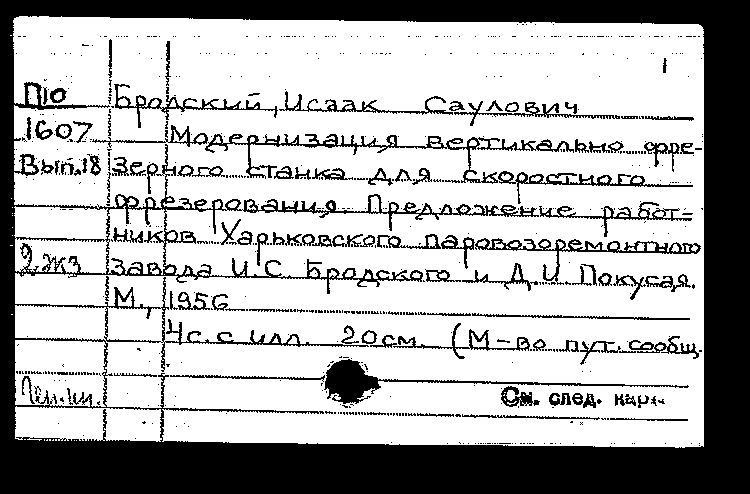 1
П10 Бродский, Исаак Саулович
1607 Модернизация вертикально фре-
Вып.18 зерного станка для скоростного
фрезерования. Предложение работ-
ников Харьковского паровозоремонтного
2 жз завода И.С. Бродского и Д.И Покусая.
М., 1956
4с. с илл. 20см. (М-во пут. сообщ.
См. след. карт.